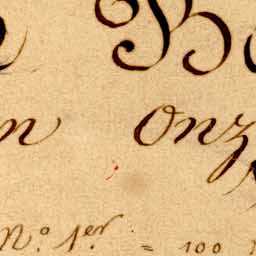 B
n onz
N.° 1.er = 100